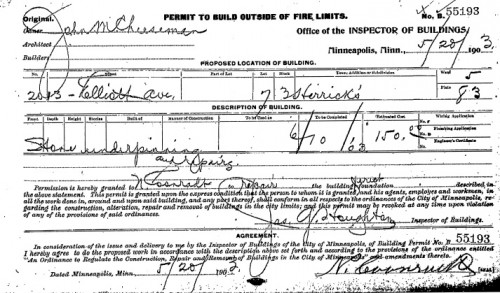 Original. PERMIT TO BUILD OUTSIDE OF FIRE LIMITS. No. B. 55193
Owner John M Cheeseman Office of the INSPECTOR OF BUILDINGS
Architect
Builder Minneapolis, Minn., 5/20/ 1903
PROPOSED LOCATION OF BUILDING.
No. Street Part of Lot Lot Block Name, Addition or Subdivision Ward 5
2013- Elliott Ave, 7 3 Herrick's Plate 83
DESCRIPTION OF BUILDING.
Front Depth Height Stories Built of Nature of Construction To be Used as To be Completed Estimated Cost Wiring Application
No. F
Plumbing Application
6/10/03. 150.00 No. B
Engineer's Certificate
Stone underpinning
and Repairs
Permission is hereby granted to to Repair the building described in
the above statement. This permit is granted upon the express condition that the person to whom it is granted, and his agents, employes and workmen, in
all the work done in, around and upon said building, and any part thereof, shall conform in all respects to the ordinances of the City of Minneapolis, re-
garding the construction, alteration, repair and removal of buildings in the city limits; and this permit may be revoked at any time upon violation
of any of the provisions of said ordinances.
Jas. G. Houghton Inspector of Buildings.
AGREEMENT.
In consideration of the issue and delivery to me by the Inspector of Buildings of the City of Minneapolis of Building Permit No. B 55193
I hereby agree to do the proposed work in accordance with the description above set forth and according to the provisions of the ordinance entitled
"An Ordinance to Regulate the Construction, Repair and Removal of Buildings in the City of Minneapolis" and amendments thereto.
Dated Minneapolis, Minn., 5/20/ 1903.